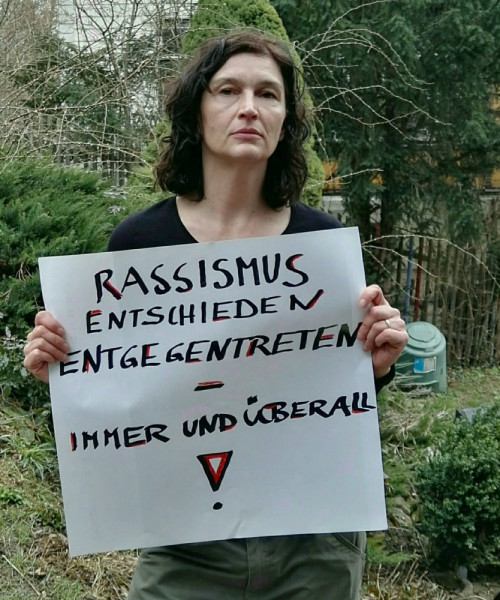 RASSISMUS
ENTSCHIEDEN
ENTGEGENTRETEN
–
IMMER UND ÜBERALL
!